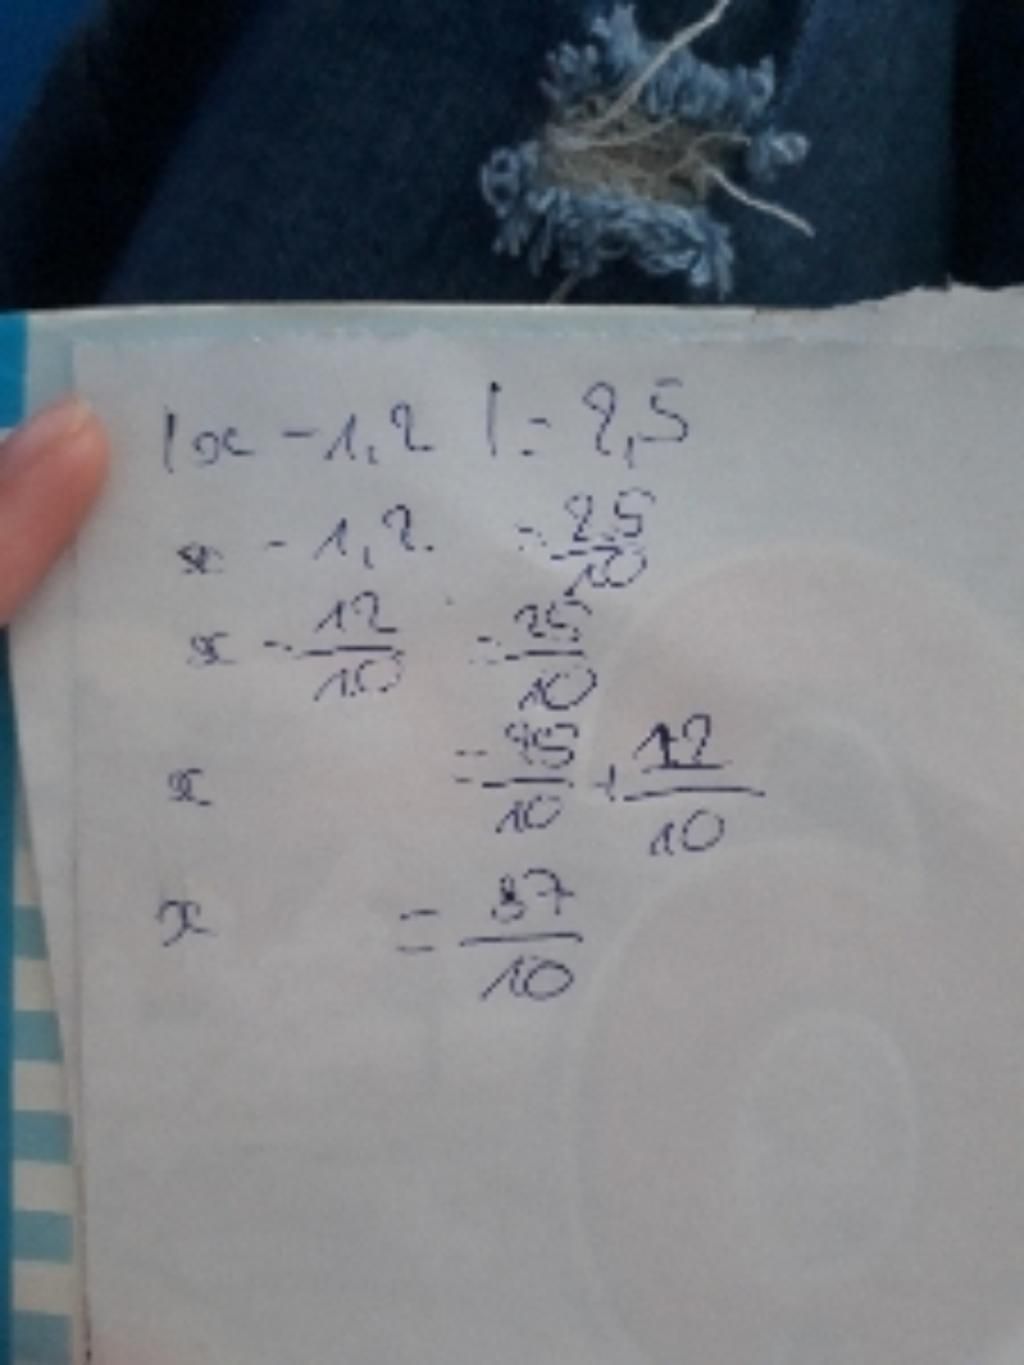 |x - 1,2 | = 2,5
x - 1,2. = 25/10
x - 12/10 = 25/10
x = 25/10 + 12/10
x = 37/10